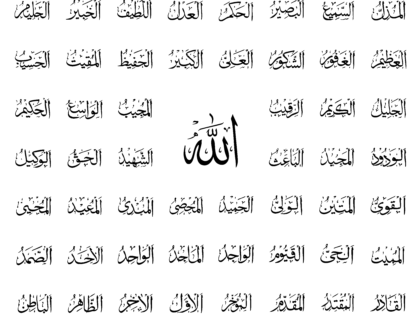 المذل السميع البصير الحكم العدل اللطيف الخبير الحليم
العظيم الغفور الشكور العلي الكبير الحفيظ المقيت الحسيب
الجليل الكريم الرقيب المجيب الواسع الحكيم
الله
الودود المجيد الباعث الشهيد الحق الوكيل
القوي المتين الولي الحميد المحصي المبدئ المعيد المحيي
المميت الحي القيوم الواجد الماجد الواحد الأحد الصمد
القادر المقتدر المقدم المؤخر الأول الآخر الظاهر الباطن